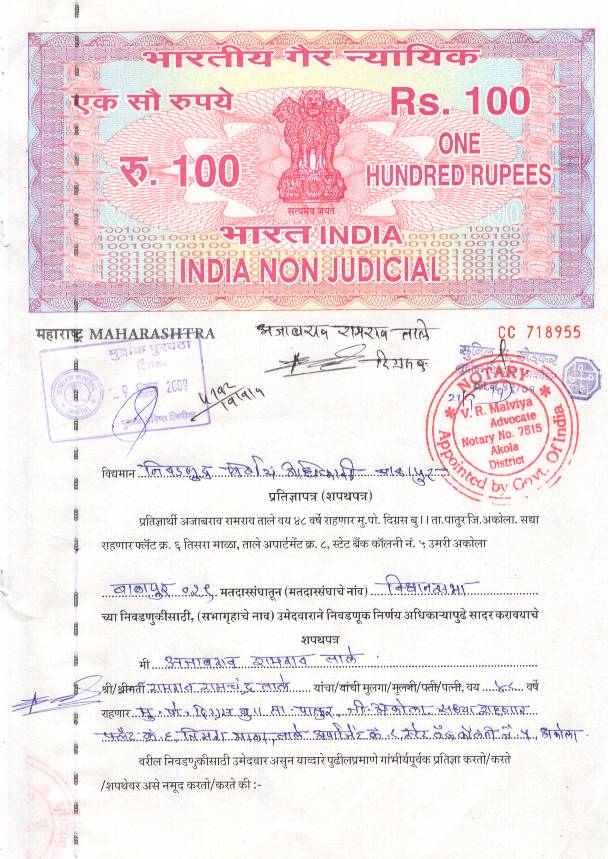 भारतीय गैर न्यायिक
एक सौ रुपये
Rs. 100
रु. 100
ONE
HUNDRED RUPEES
सत्यमेव जयते
भारत INDIA
INDIA NON JUDICIAL
महाराष्ट्र MAHARASHTRA
अजाबराव रामराव ताले
CC 718955
मुद्रांक पुरवठा
दिनांक
9 2009
दिग्रस बु.
NOTARY
V. R. Malviya
Advocate
Notary No. 7515
Akola
District
Appointed by Govt. Of India
विद्यमान निवडणुक निर्णय अधिकारी बाळापुर
प्रतिज्ञापत्र (शपथपत्र)
प्रतिज्ञार्थी अजाबराव रामराव ताले वय ४८ वर्षे राहणार मु.पो. दिग्रस बु।। ता.पातुर जि.अकोला. सद्या
राहणार फ्लॅट क्र. ६ तिसरा माळा, ताले अपार्टमेंट क्र. ८, स्टेट बँक कॉलनी नं. ५ उमरी अकोला
बाळापुर ०२९ मतदारसंघातून (मतदारसंघाचे नांव) विधानसभा
च्या निवडणुकीसाठी, (सभागृहाचे नाव) उमेदवाराने निवडणूक निर्णय अधिकाऱ्यापुढे सादर करावयाचे
शपथपत्र
मी अजाबराव रामराव ताले
श्री/श्रीमती रामराव रामचंद्र ताले यांचा/यांची मुलगा/मुलगी/पती/पत्नी, वय ४८ वर्षे
राहणार मु. पो. दिग्रस बु।। ता. पातुर, जी. अकोला सध्या राहणार
फ्लॅट क्रं. ६ तिसरा माळा, ताले अपार्टमेंट क्रं. ८ स्टेट बँक कॉलनी नं. ५, अकोला.
वरील निवडणुकीसाठी उमेदवार असुन याव्दारे पुढीलप्रमाणे गांभीर्यपूर्वक प्रतिज्ञा करतो/करते
/शपथेवर असे नमूद करतो/करते की :-